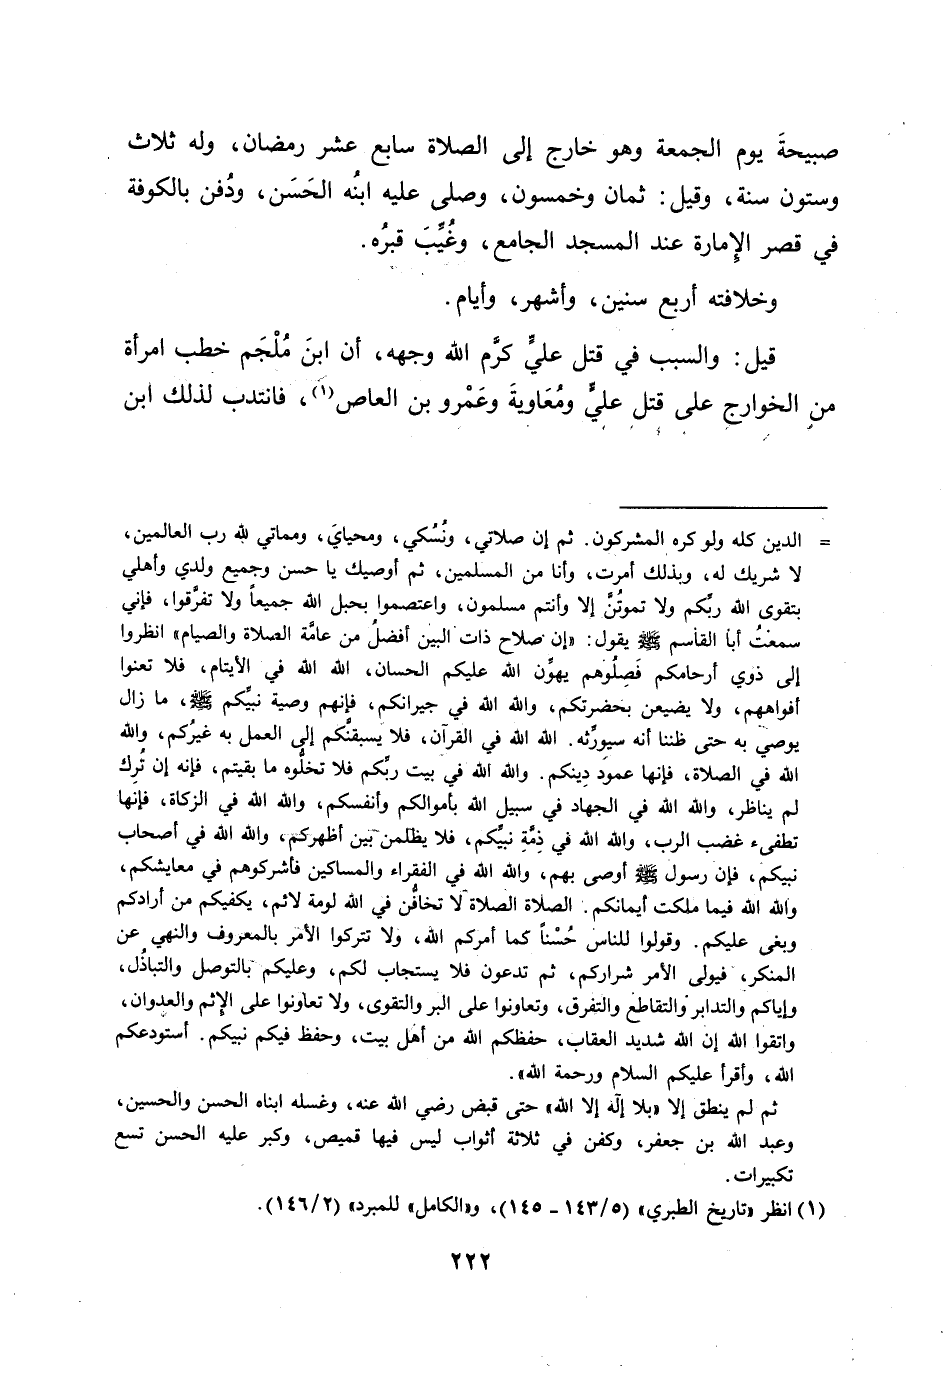 صبيحةَ يوم الجمعة وهو خارج إلى الصلاة سابع عشر رمضان، وله ثلاث
وستون سنة، وقيل: ثمان وخمسون، وصلى عليه ابنُه الحَسَن، ودُفن بالكوفة
في قصر الإمارة عند المسجد الجامع، وغُيِّبَ قبرُه.
وخلافته أربع سنين، وأشهر، وأيام.
قيل: والسبب في قتل عليٍّ كرَّم الله وجهه، أن ابنَ مُلْجَم خطب امرأة
من الخوارج على قتل عليٍّ ومُعَاويةَ وعَمْرو بن العاص(١)، فانتدب لذلك ابن
= الدين كله ولو كره المشركون. ثم إن صلاتي، ونُسُكي، ومحيايَ، ومماتي لله رب العالمين،
لا شريك له، وبذلك أمرت، وأنا من المسلمين، ثم أوصيك يا حسن وجميع ولدي وأهلي
بتقوى الله ربّكم ولا تموتُنَّ إلا وأنتم مسلمون، واعتصموا بحبل الله جميعاً ولا تفرَّقوا، فإني
سمعتُ أبا القاسم ﷺ يقول: «إن صلاح ذات البين أفضلُ من عامَّة الصلاة والصيام» انظروا
إلى ذوي أرحامكم فَصِلُوهم يهوِّن الله عليكم الحسان، الله الله في الأيتام، فلا تعنوا
أفواههم، ولا يضيعن بحضرتكم، والله الله في جيرانكم، فإنهم وصية نبيِّكم ﷺ، ما زال
يوصي به حتى ظننا أنه سيورِّثه. الله الله في القرآن، فلا يسبقنَّكم إلى العمل به غيرُكم، والله
الله في الصلاة، فإنها عمود دينكم. والله الله في بيت ربِّكم فلا تخلُّوه ما بقيتم، فإنه إن تُرِك
لم يناظر، والله الله في الجهاد في سبيل الله بأموالكم وأنفسكم، والله الله في الزكاة، فإنها
تطفىء غضب الرب، والله الله في ذِمَّةِ نبيِّكم، فلا يظلمن بين أظهركم، والله الله في أصحاب
نبيكم، فإن رسول ﷺ أوصى بهم، والله الله في الفقراء والمساكين فأشركوهم في معايشكم،
والله الله فيما ملكت أيمانكم. الصلاة الصلاة لا تخافُن في الله لومة لائم، يكفيكم من أرادكم
وبغى عليكم. وقولوا للناس حُسْناً كما أمركم الله، ولا تتركوا الأمر بالمعروف والنهي عن
المنكر، فيولى الأمر شراركم، ثم تدعون فلا يستجاب لكم، وعليكم بالتوصل والتباذُل،
وإياكم والتدابر والتقاطع والتفرق، وتعاونوا على البر والتقوى، ولا تعاونوا على الإثم والعدوان،
واتقوا الله إن الله شديد العقاب، حفظكم الله من أهل بيت، وحفظ فيكم نبيكم. أستودعكم
الله، وأقرأ عليكم السلام ورحمة الله».
ثم لم ينطق إلا «بلا إلٰه إلا الله» حتى قبض رضي الله عنه، وغسله ابناه الحسن والحسين،
وعبد الله بن جعفر، وكفن في ثلاثة أثواب ليس فيها قميص، وكبر عليه الحسن تسع
تكبيرات.
(١) انظر «تاريخ الطبري» (١٤٣/٥ ـ ١٤٥)، و«الكامل» للمبرد» (١٤٦/٢).
٢٢٢